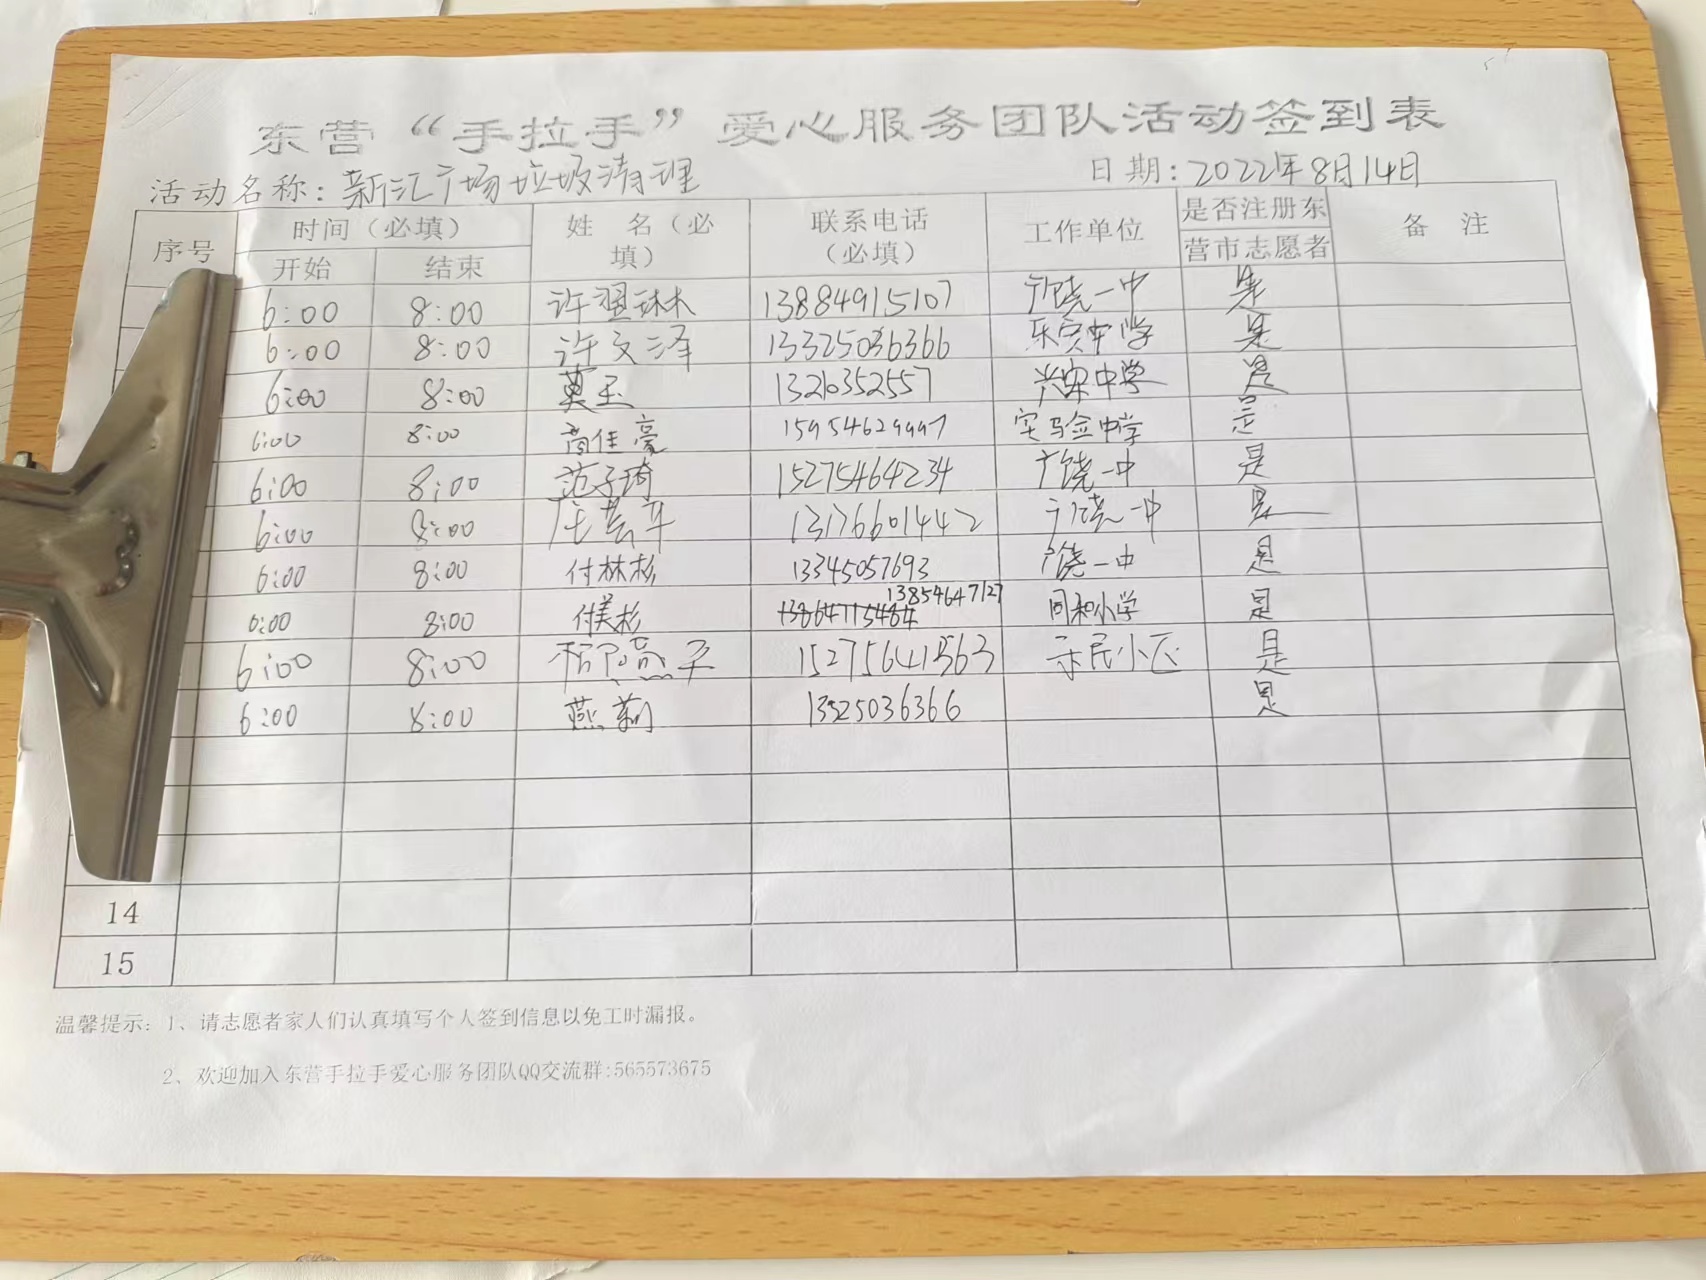 东营“手拉手”爱心服务团队活动签到表
活动名称：新汇广场垃圾清理 日期：2022年8月14日
序号 时间（必填） 姓 名（必填） 联系电话（必填） 工作单位 是否注册东营市志愿者 备 注
开始 结束
6:00 8:00 许 琳 13884915107 广饶一中 是
6:00 8:00 许文泽 13325036366 乐安中学 是
6:00 8:00 莫玉 13210352557 兴安中学 是
6:00 8:00 商佳豪 15954629997 实验中学 是
6:00 8:00 范子琦 15275464234 广饶一中 是
6:00 8:00 13176601442 广饶一中 是
6:00 8:00 付林杉 13345057693 广饶一中 是
13854647127
6:00 8:00 付美杉 13864715484 同和小学 是
6:00 8:00 小区 是
6:00 8:00 燕莉 13525036366 是
14
15
温馨提示：1、请志愿者家人们认真填写个人签到信息以免工时漏报。
2、欢迎加入东营手拉手爱心服务团队QQ交流群:565573675